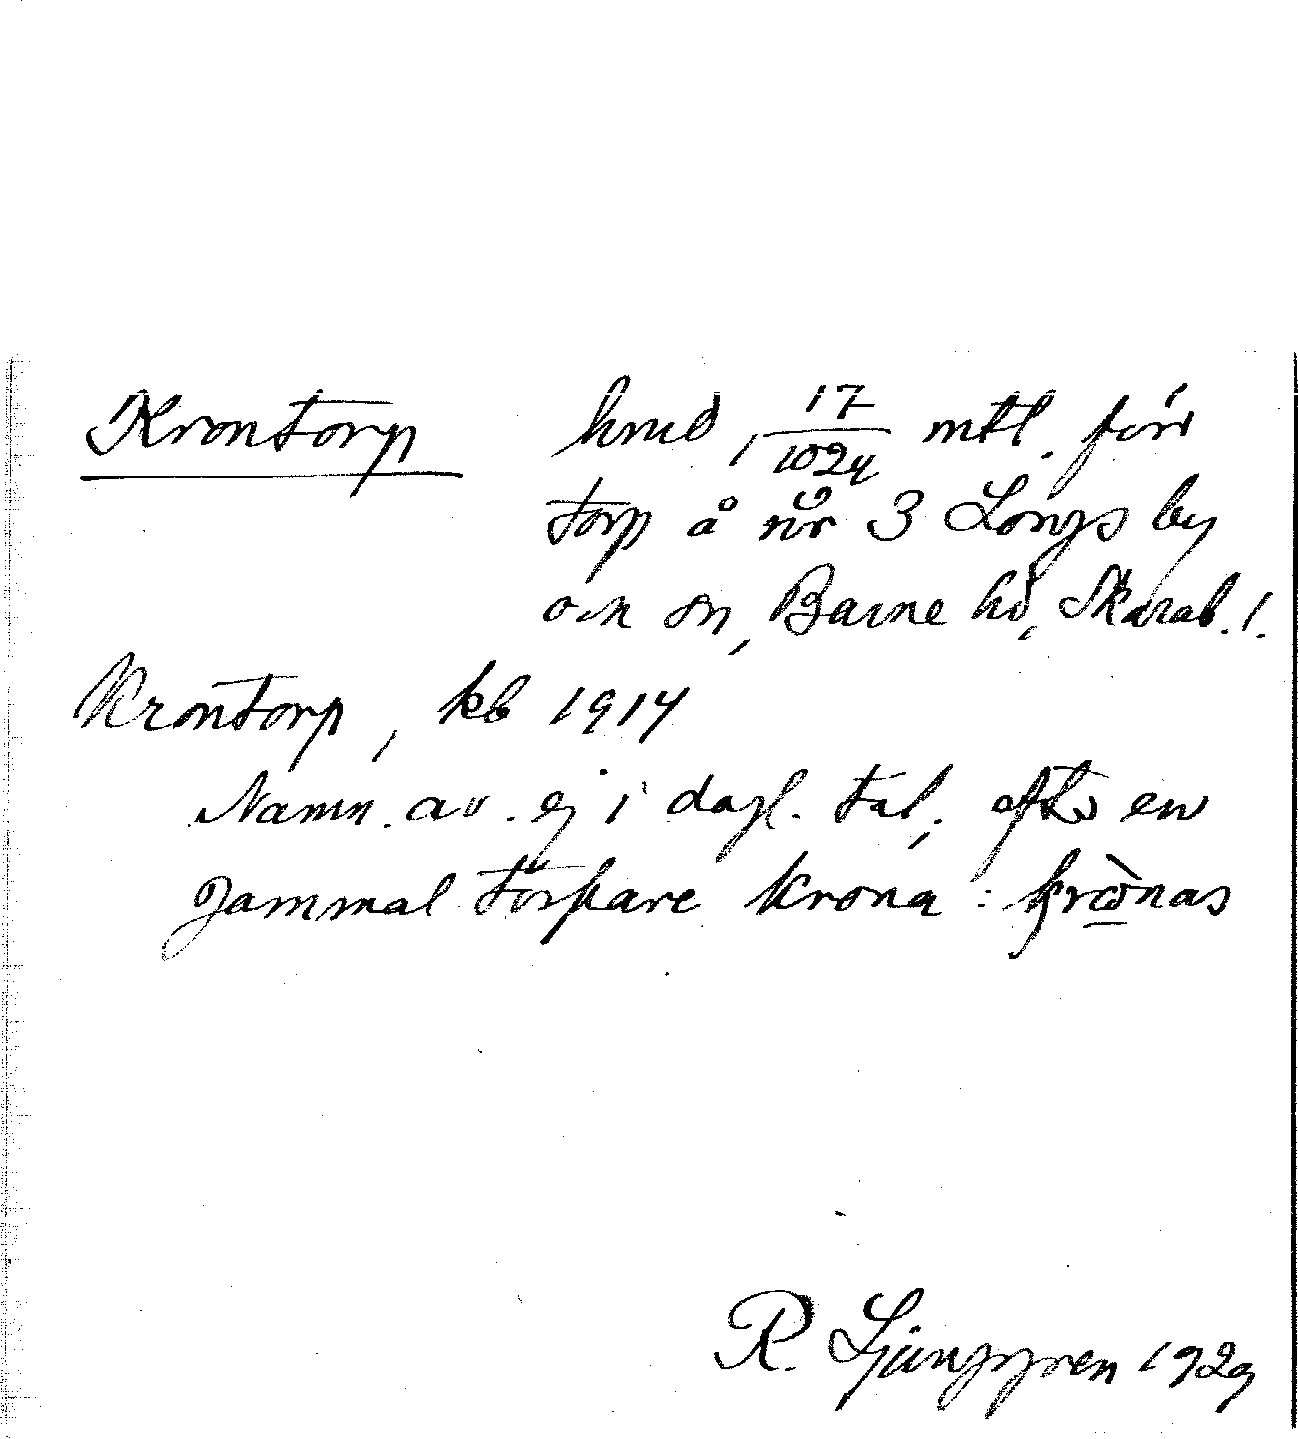 Krontorp hmd, 17/1024 mtl. förr
torp å nr 3 Longs by
och sn, Barne hd, Skarab. l.
Krontorp, kb 1914
Namn. av. ej i dagl. tal,. efter en
gammal torpare Krona : krɷ̀nas
R. Ljunggren 1929